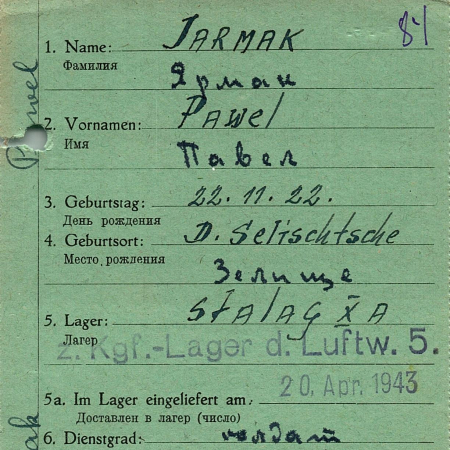 84
1. Name: JARMAK
Фамилия
Ярмак
2. Vornamen: PAWEl
Имя
Павел
3. Geburtstag: 22. 11. 22.
День рождения
4. Geburtsort: D. Selischtsche
Место рождения
Зелище
5. Lager: StAlAG X A
Лагер
z. Kgf.-Lager d. Luftw. 5.
20. Apr. 1943
5a. Im Lager eingeliefert am:
Доставлен в лагер (число)
6. Dienstgrad: солдат